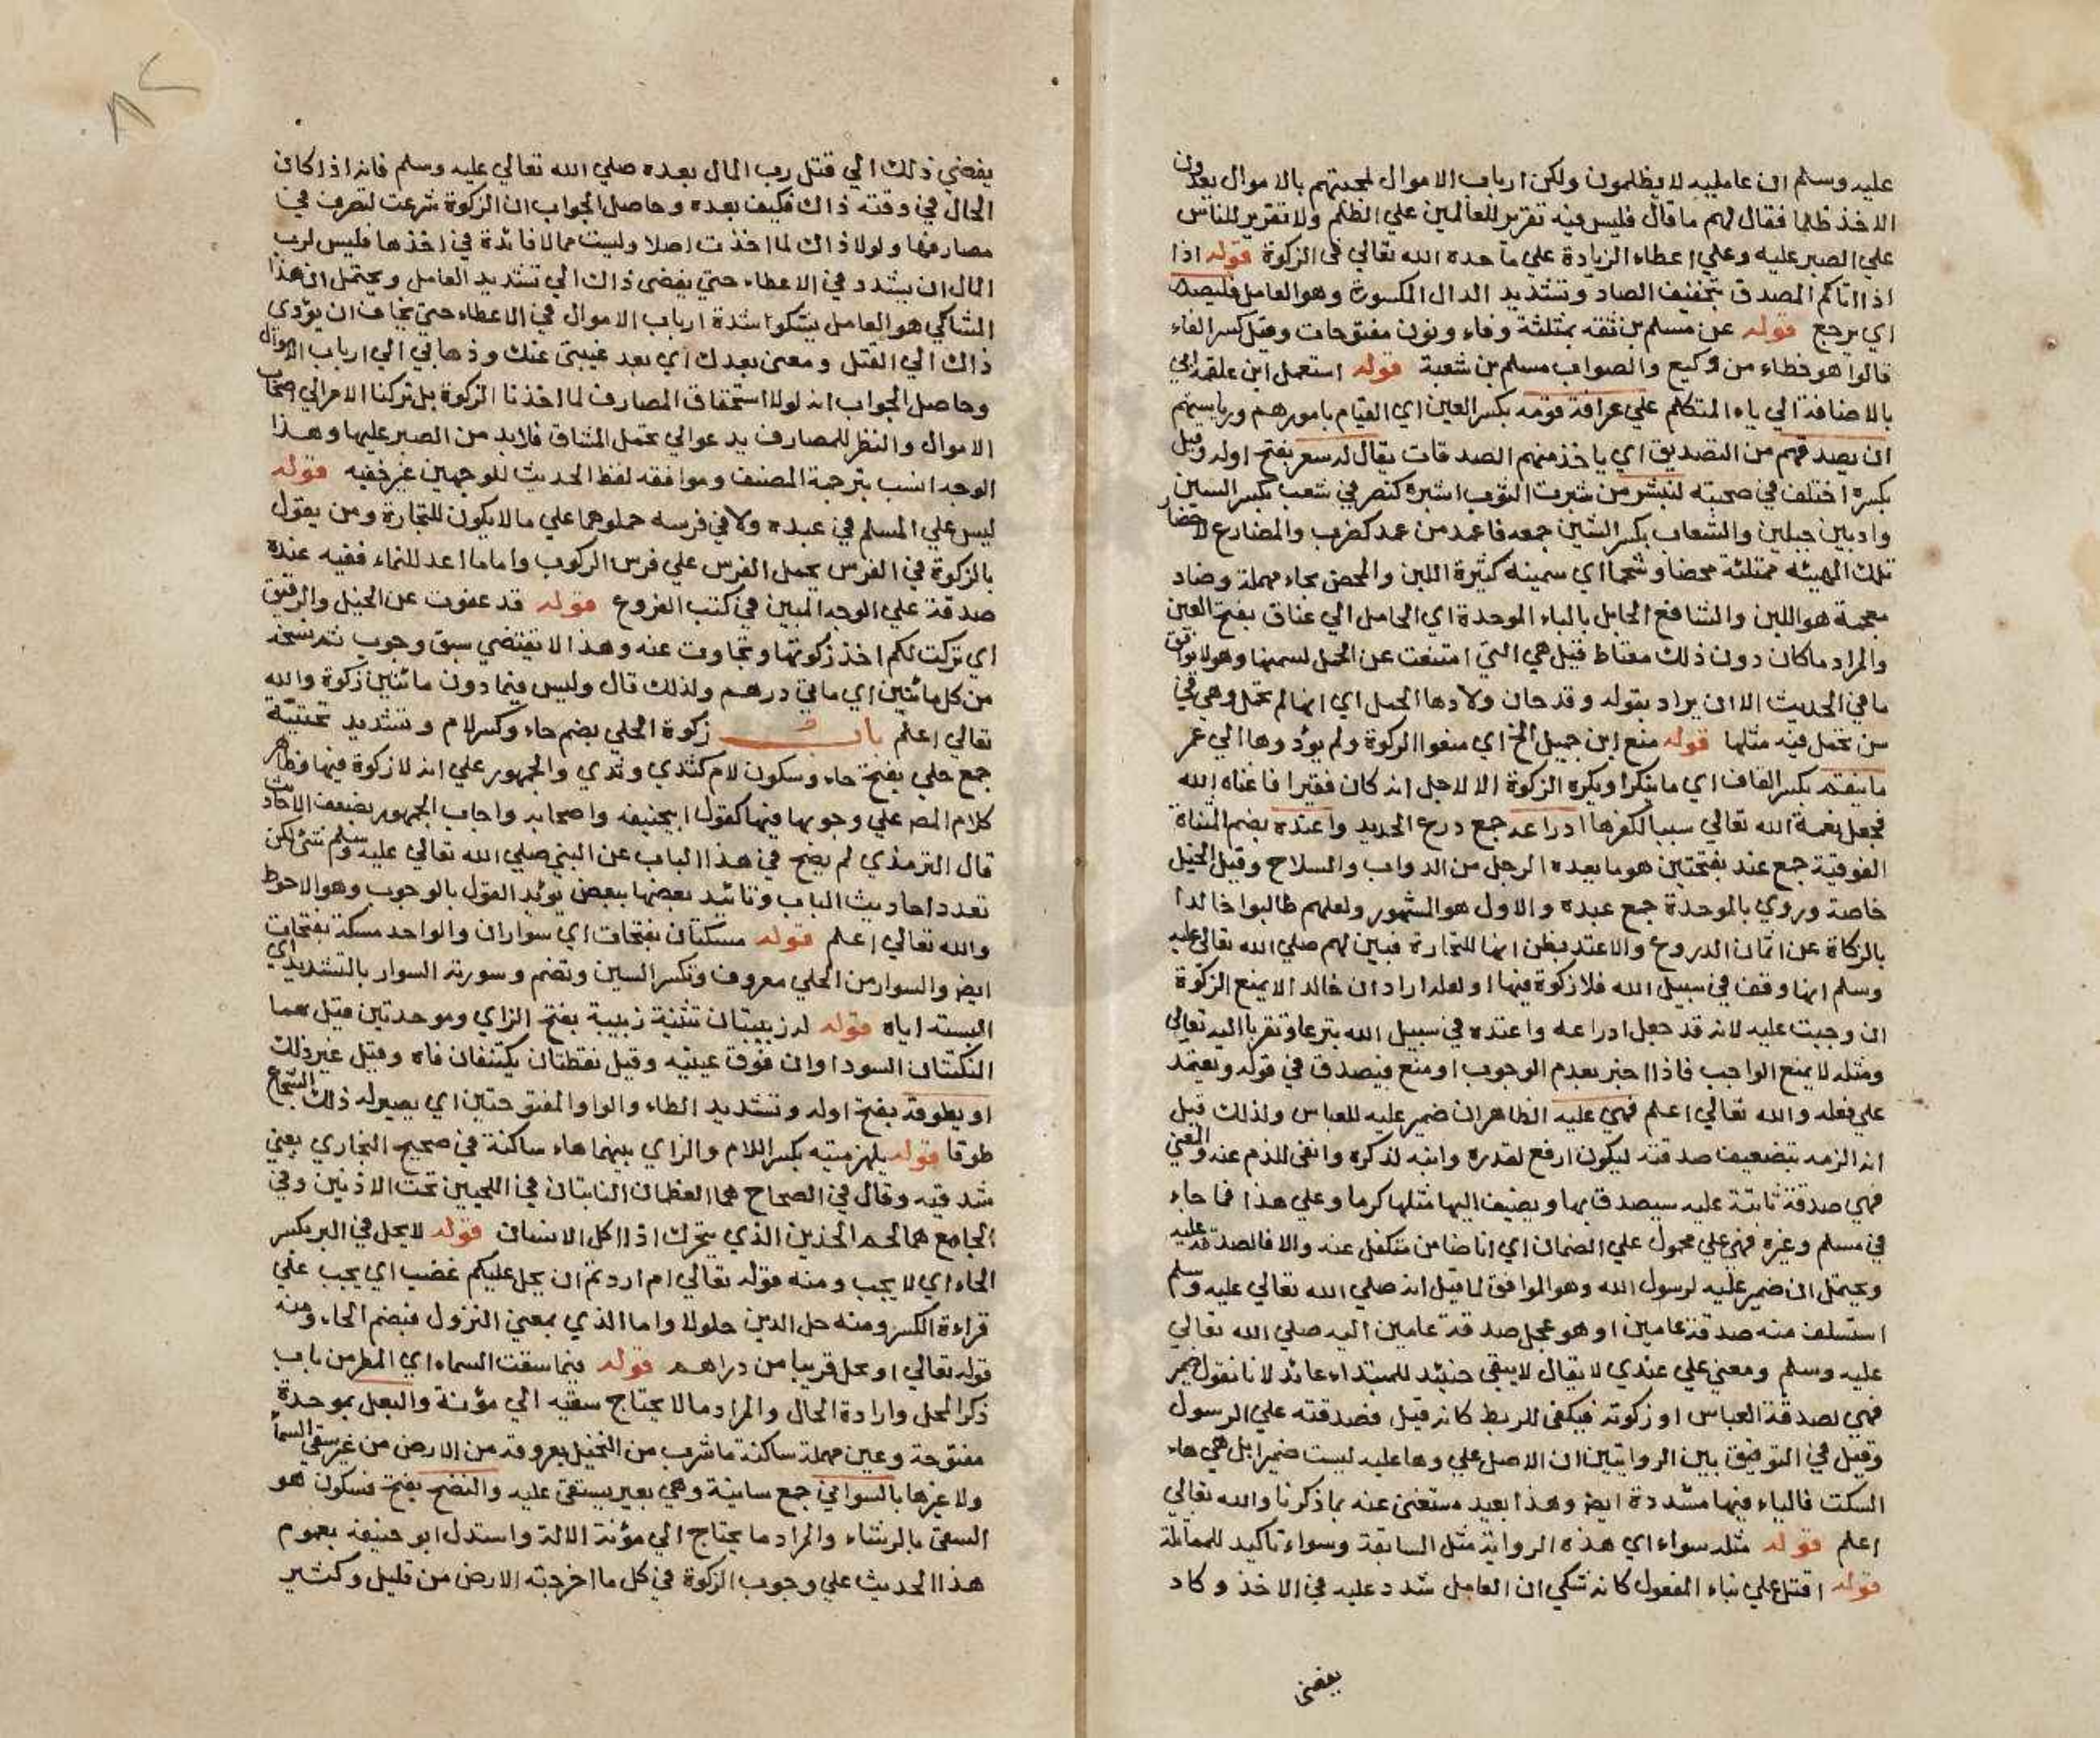 عليه وسلم ان عامليه لا يظلمون ولكن ارباب الاموال لمحبتهم بالاموال يعدون
الاخذ ظلما فقال لهم ما قال فليس فيه تقرير للعالمين علي الظلم ولا تقرير للناس
علي الصبر عليه وعلي اعطاء الزيادة علي ما حده الله تعالي في الزكوة قوله اذا
اذا اتاكم المصدق بتخفيف الصاد وتشديد الدال المكسورة وهو العامل فليصدر
اي يرجع قوله عن مسلم بن ثفنه بمثلثة وفاء ونون مفتوحات وقيل كسر الفاء
قالوا هو خطاء من وكيع والصواب مسلم بن شعبة قوله استعمل ابن علقمة ابي
بالاضافة الي ياء المتكلم علي عرافة قومه بكسر العين اي القيام بامورهم ورياستهم
ان يصدقهم من التصديق اي ياخذ منهم الصدقات يقال له سعر بفتح اوله وقيل
بكسره اختلف في صحبته لنبشر من شبرت الثوب اشبره كنصر في شعب بكسر الشين
واد بين جبلين والشعاب بكسر الشين جمعه فاعمد من عمد كضرب والمضارع لاحضار
تلك الهيئه ممتلئه محضا وشحما اي سمينه كثيرة اللبن والمحض بحاء مهملة وضاد
معجمة هو اللبن والشافع الحابل بالباء الموحدة اي الحامل الي عناق بفتح العين
والمراد ما كان دون ذلك معتاط قيل هي التي امتنعت عن الحمل لسمنها وهو لا يوافق
ما في الحديث الا ان يراد بقوله وقد حان ولادها الحمل اي انها لم تحمل وهي في
سن تحمل فيه مثلها قوله منع ابن جميل الخ اي منعوا الزكوة ولم يؤدوها الي عمر
ما ينقم بكسر القاف اي ما ينكر او يكره الزكوة الا لاجل انه كان فقيرا فاغناه الله
فجعل نعمة الله تعالي سببا لكفرها ادراعه جمع درع الحديد واعتده بضم المثناة
الفوقية جمع عتد بفتحتين هو ما يعده الرجل من الدواب والسلاح وقيل الخيل
خاصة وروي بالموحدة جمع عبده والاول هو المشهور ولعلهم طالبوا خالدا
بالزكاة عن اثمان الدروع والاعتد بظن انها للتجارة فبين لهم صلي الله تعالي عليه
وسلم انها وقف في سبيل الله فلا زكوة فيها او لعله اراد ان خالد الا يمنع الزكوة
ان وجبت عليه لانه قد جعل ادراعه واعتده في سبيل الله تبرعا وتقربا اليه تعالي
ومثله لا يمنع الواجب فاذا اخبر بعدم الوجوب او منع فيصدق في قوله وتعتمد
علي فعله والله تعالي اعلم فهي عليه الظاهر ان ضمير عليه للعباس ولذلك قيل
انه الزمه بتضعيف صدقته ليكون ارفع لقدره وانبه لذكره وانفي للذم عنه والمعني
فهي صدقة ثابتة عليه سيصدق بها ويضيف اليها مثلها كرما وعلي هذا فما جاء
في مسلم وغيره فهي علي محمول علي الضمان اي انا ضامن متكفل عنه والا فالصدقة عليه
ويحتمل ان ضمير عليه لرسول الله وهو الموافق لما قيل انه صلي الله تعالي عليه وسلم
استسلف منه صدقة عامين او هو عجل صدقة عامين اليه صلي الله تعالي
عليه وسلم ومعني علي عندي لا يقال لا يبقي حنيئذ للمبتداء عائد لانا نقول ضمير
فهي لصدقة العباس او زكوته فيكفي للربط كانه قيل فصدقته علي الرسول
وقيل في التوفيق بين الروايتين ان الاصل علي وها عليه ليست ضميرا بل هي هاء
السكت فالياء فيها مشددة ايض وهذا بعيد مستغنى عنه بما ذكرنا والله تعالي
اعلم قوله مثله سواء اي هذه الرواية مثل السابقة وسواء تاكيد للمماثلة
قوله اقتل علي بناء المفعول كانه شكي ان العامل شدد عليه في الاخذ وكاد
يفضى
يفضي ذلك الي قتل رب المال بعده صلي الله تعالي عليه وسلم فانه اذا كان
الحال في وقته ذاك فكيف بعده وحاصل الجواب ان الزكوة شرعت لتصرف في
مصارفها ولولا ذاك لما اخذت اصلا وليست مما لا فائدة في اخذها فليس لرب
المال ان يشدد في الاعطاء حتي يفضى ذاك الي تشديد العامل ويحتمل ان هذا
الشاكي هو العامل يشكوا شدة ارباب الاموال في الاعطاء حتي يخاف ان يؤدي
ذاك الي القتل ومعنى بعدك اي بعد غيبتى عنك وذهابي الي ارباب الاموال
وحاصل الجواب انه لولا استحقاق المصارف لما اخذنا الزكوة بل تركنا الامر الي اصحاب
الاموال والنظر للمصارف يدعوا الي تحمل المشاق فلا بد من الصبر عليها وهذا
الوجه انسب بترجمة المصنف وموافقه لفظ الحديث للوجهين غير خفيه قوله
ليس علي المسلم في عبده ولا في فرسه حملوهما علي ما لا يكون للتجارة ومن يقول
بالزكوة في الفرس يحمل الفرس علي فرس الركوب واما ما اعد للنماء ففيه عنده
صدقة علي الوجه المبين في كتب الفروع قوله قد عفوت عن الخيل والرقيق
اي تركت لكم اخذ زكوتها وتجاوت عنه وهذا لا يقتضي سبق وجوب ثم نسخه
من كل مائتين اي مافي درهم ولذلك قال وليس فيما دون مائتين زكوة والله
تعالي اعلم باب زكوة الحلي بضم حاء وكسر لام وتشديد تحتيّة
جمع حلي بفتحة حاء وسكون لام كثدي وثدي والجمهور علي انه لا زكوة فيها وظاهر
كلام المصـ علي وجوبها فيها كقول ابيحنيفه واصحابه واجاب الجمهور بضعف الاحاديث
قال الترمذي لم يصح في هذا الباب عن النبي صلي الله تعالي عليه وسلم شئ لكن
تعدد احاديث الباب وتائيد بعضها ببعض يؤيد القول بالوجوب وهو الاحوط
والله تعالي اعلم قوله مسكتان بفتحات اي سواران والواحد مسكة بفتحات
ايض والسوار من الحلي معروف وتكسر السين وتضم وسورته السوار بالتشديد اي
البسته اياه قوله له زبيبتان تثنية زبيبة بفتح الزاي وموحدتين قيل هما
النكتتان السوداوان فوق عينيه وقيل نقطتان يكتنفان فاه وقيل غير ذلك
او يطوقه بفتح اوله وتشديد الطاء والواو المفتوحتين اي يصير له ذلك الشجاع
طوقا قوله بلهزمتيه بكسر اللام والزاي بينهما هاء ساكنة في صحيح البخاري يعني
شدقيه وقال في الصحاح هما العظمان النابتان في اللحيين تحت الاذنين وفي
الجامع هما لحم الخذين الذي يتحرك اذا اكل الانسان قوله لا يحل في البر بكسر
الحاء اي لا يجب ومنه قوله تعالي ام اردتم ان يحل عليكم غضب اي يجب علي
قراءة الكسر ومنه حل الدين حلولا واما الذي بمعني النزول فبضم الحاء ومنه
قوله تعالي او تحل قريبا من دراهم قوله فيما سقت السماء اي المطر من باب
ذكر المحل وارادة الحال والمراد ما لا يحتاج سقيه الي مؤنة والبعل بموحدة
مفتوحة وعين مهملة ساكنة ما شرب من النخيل بعروقه من الارض من غير سقي السما
ولا غيرها بالسواني جمع سانية وهي بعير يستقى عليه والنضح بفتح فسكون هو
السقى بالرشاء والمراد ما يحتاج الي مؤنة الالة واستدل ابو حنيفه بعموم
هذا الحديث علي وجوب الزكوة في كل ما اخرجته الارض من قليل وكثير